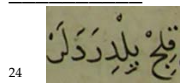 قِلِجْ يِلْدِرَدَلَرْ
24